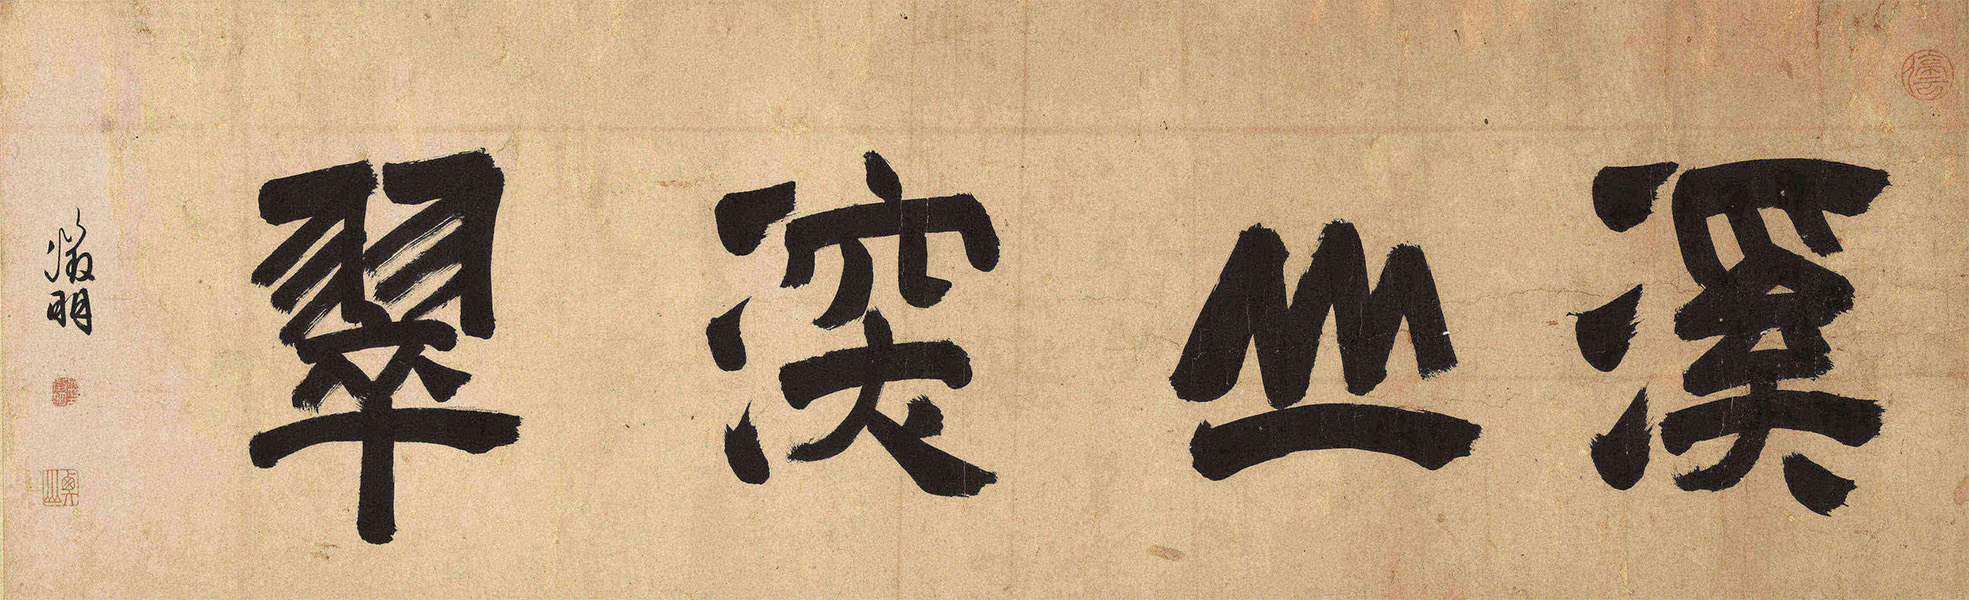 溪山深翠
徵明